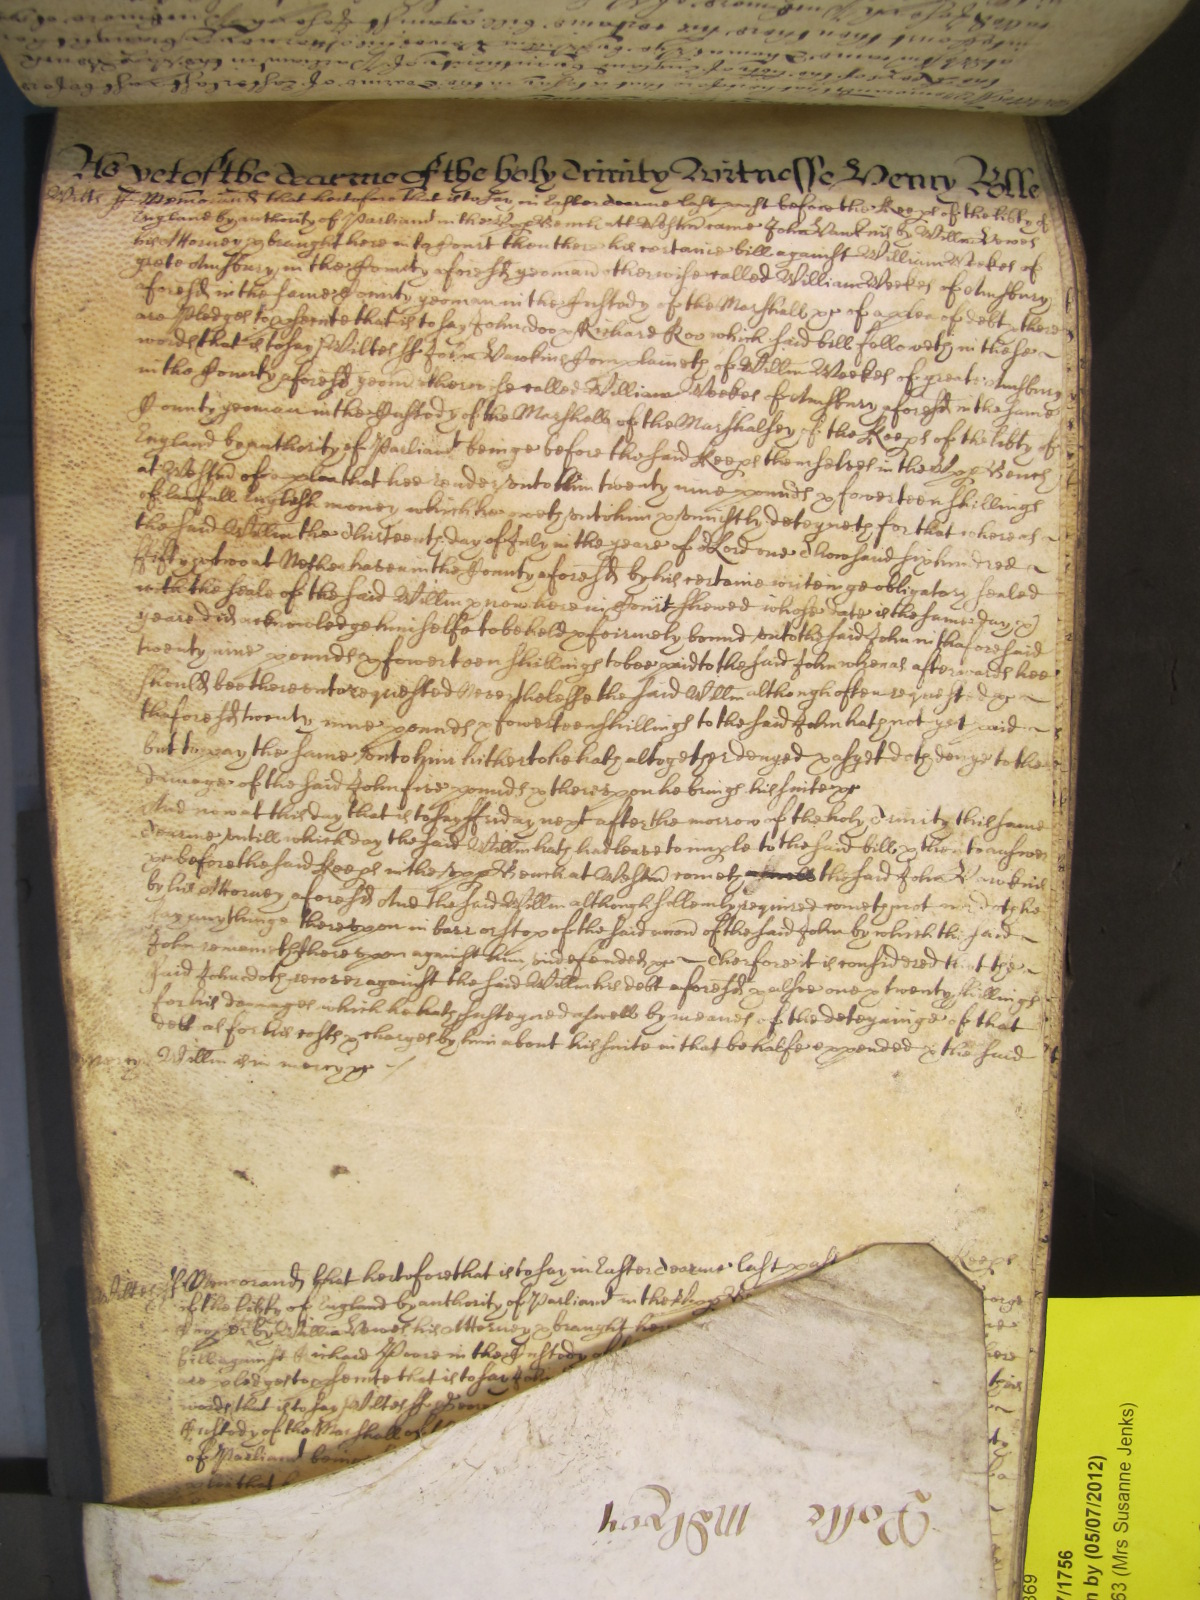 As yet of the Tearme of the holy Trinity Witnesse Henry Rolle
Wilts ss Memorand that heretofore that is to say in Easter Tearme last past before the Keeps of the lib͠ty of
England by authority of Parliamt in the Upp Bench att Westm̃ came John Vawkins by Willm Vowes
his Attorney & brought here into Court then there his certaine bill against William Weekes of
greate Amsbury in the County aforesd yeoman otherwise called William Weekes of Amsbury
aforesd in the same County yeoman in the Custody of the Marshall &c of a plea of debt & there
are Pledges to p̱secute that is to say John Doo & Richard Roo which said bill followeth in these
words that is to say Wiltes ss John Vawkins Complaineth of Willm Weekes of greate Amsbury
in the County aforesd yeom̃ otherwise called William Weekes of Amsbury aforesd in the same
County yeoman in the Custody of the Marshall of the Marshalsey of the Keeps of the lib͠ty of
England by authority of Parliamt beinge before the said Keeps themselves in the Upp Bench
at Westm̃ of a plea that hee render unto him twenty nine pounds & fowerteen shillings
of lawfull English money which he oweth unto him & uniustly deteyneth for that whereas
the said Willm the thirteenth day of July in the yeare of or Lord one thowsand six hundred
fifty & two at Netherhaven in the County aforesd by his certaine writeinge obligatory sealed
with the seale of the said Willm & now here in Court shewed whose date is the same day &
yeare did acknowledge himselfe to be held & feirmely bound unto the said John in thaforesaid
twenty nine pounds & fowerteen shillings to bee paid to the said John whenas afterwards hee
should bee thereunto requested Neverthelesse the said Willm although often requested &c
thaforesd twenty nine pounds & fowerteen shillings to the said John hath not yet paid
but to pay the same unto him hitherto he hath altogether denyed & as yet doth denye to the
damage of the said John five pounds & thereupon he brings his suite &c
And now at this day that is to say ffriday next after the morrow of the holy Trinity this same
Tearme untill which day the said Willm hath had leave to imple to the said bill & then to answer
&c before the said Keeps in the Upp Bench at Westm̃ cometh the said John Vawkins
by his Attorney aforesd And the said Willm although sollemly required cometh not nor doth he
say anythinge thereupon in barr or stop of the said accon̄ of the said John by which the said
John remaineth thereupon against him undefended &c Therfore it is considred that the
said John doth recover against the said Willm his debt aforesd & alsoe one & twenty shillings
for his damages which he hath susteyned aswell by meanes of the deteyninge of that
debt as for his costs & charges by him about his suite in that behalfe expended & the said
Mercy Willm is in mercy &c
Wiltes ss Memorand that hertofore that is to say in Easter Tearme last past
Keeps
of the lib͠ty of England by authority of Parliamt in the Upp
by Willm Vowes his Attorney & brought
bill against Richard Poore in the Custody of
are pledges to p̱secute that is to say John
words that is to say Wiltes ss
Custody of the Marshall of
of Parliamt beinge
a plea that
Rolle
369
7/1756
n by (05/07/2012)
63 (Mrs Susanne Jenks)